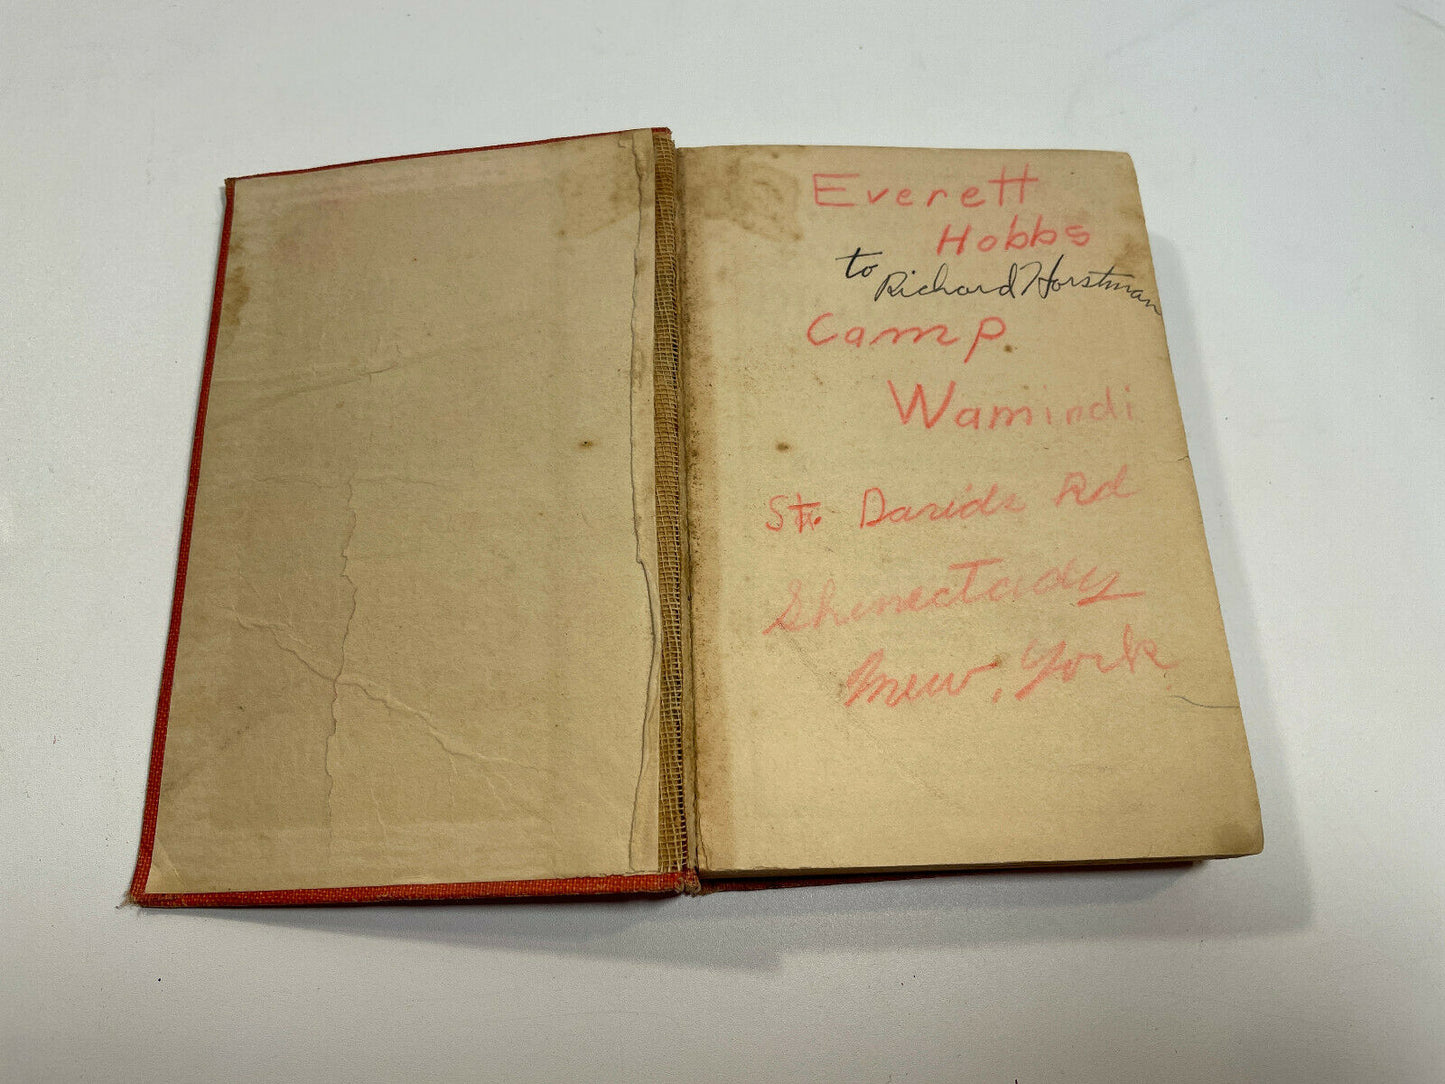 Everett
Hobbs
to Richard Horstman
Camp
Wamindi
St. Davids Rd
Shenectady
New, York